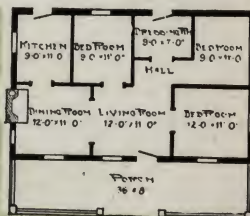 KITCHEN
9-0×11-0
BEDROOM
9-0×11-0"
DRESSING RM
9-0×7-0"
BEDROOM
9-0×11-0
HALL
DINING ROOM
12-0"×11-0"
LIVING ROOM
12-0"×11-0"
BEDROOM
12-0×11-0
PORCH
36×8